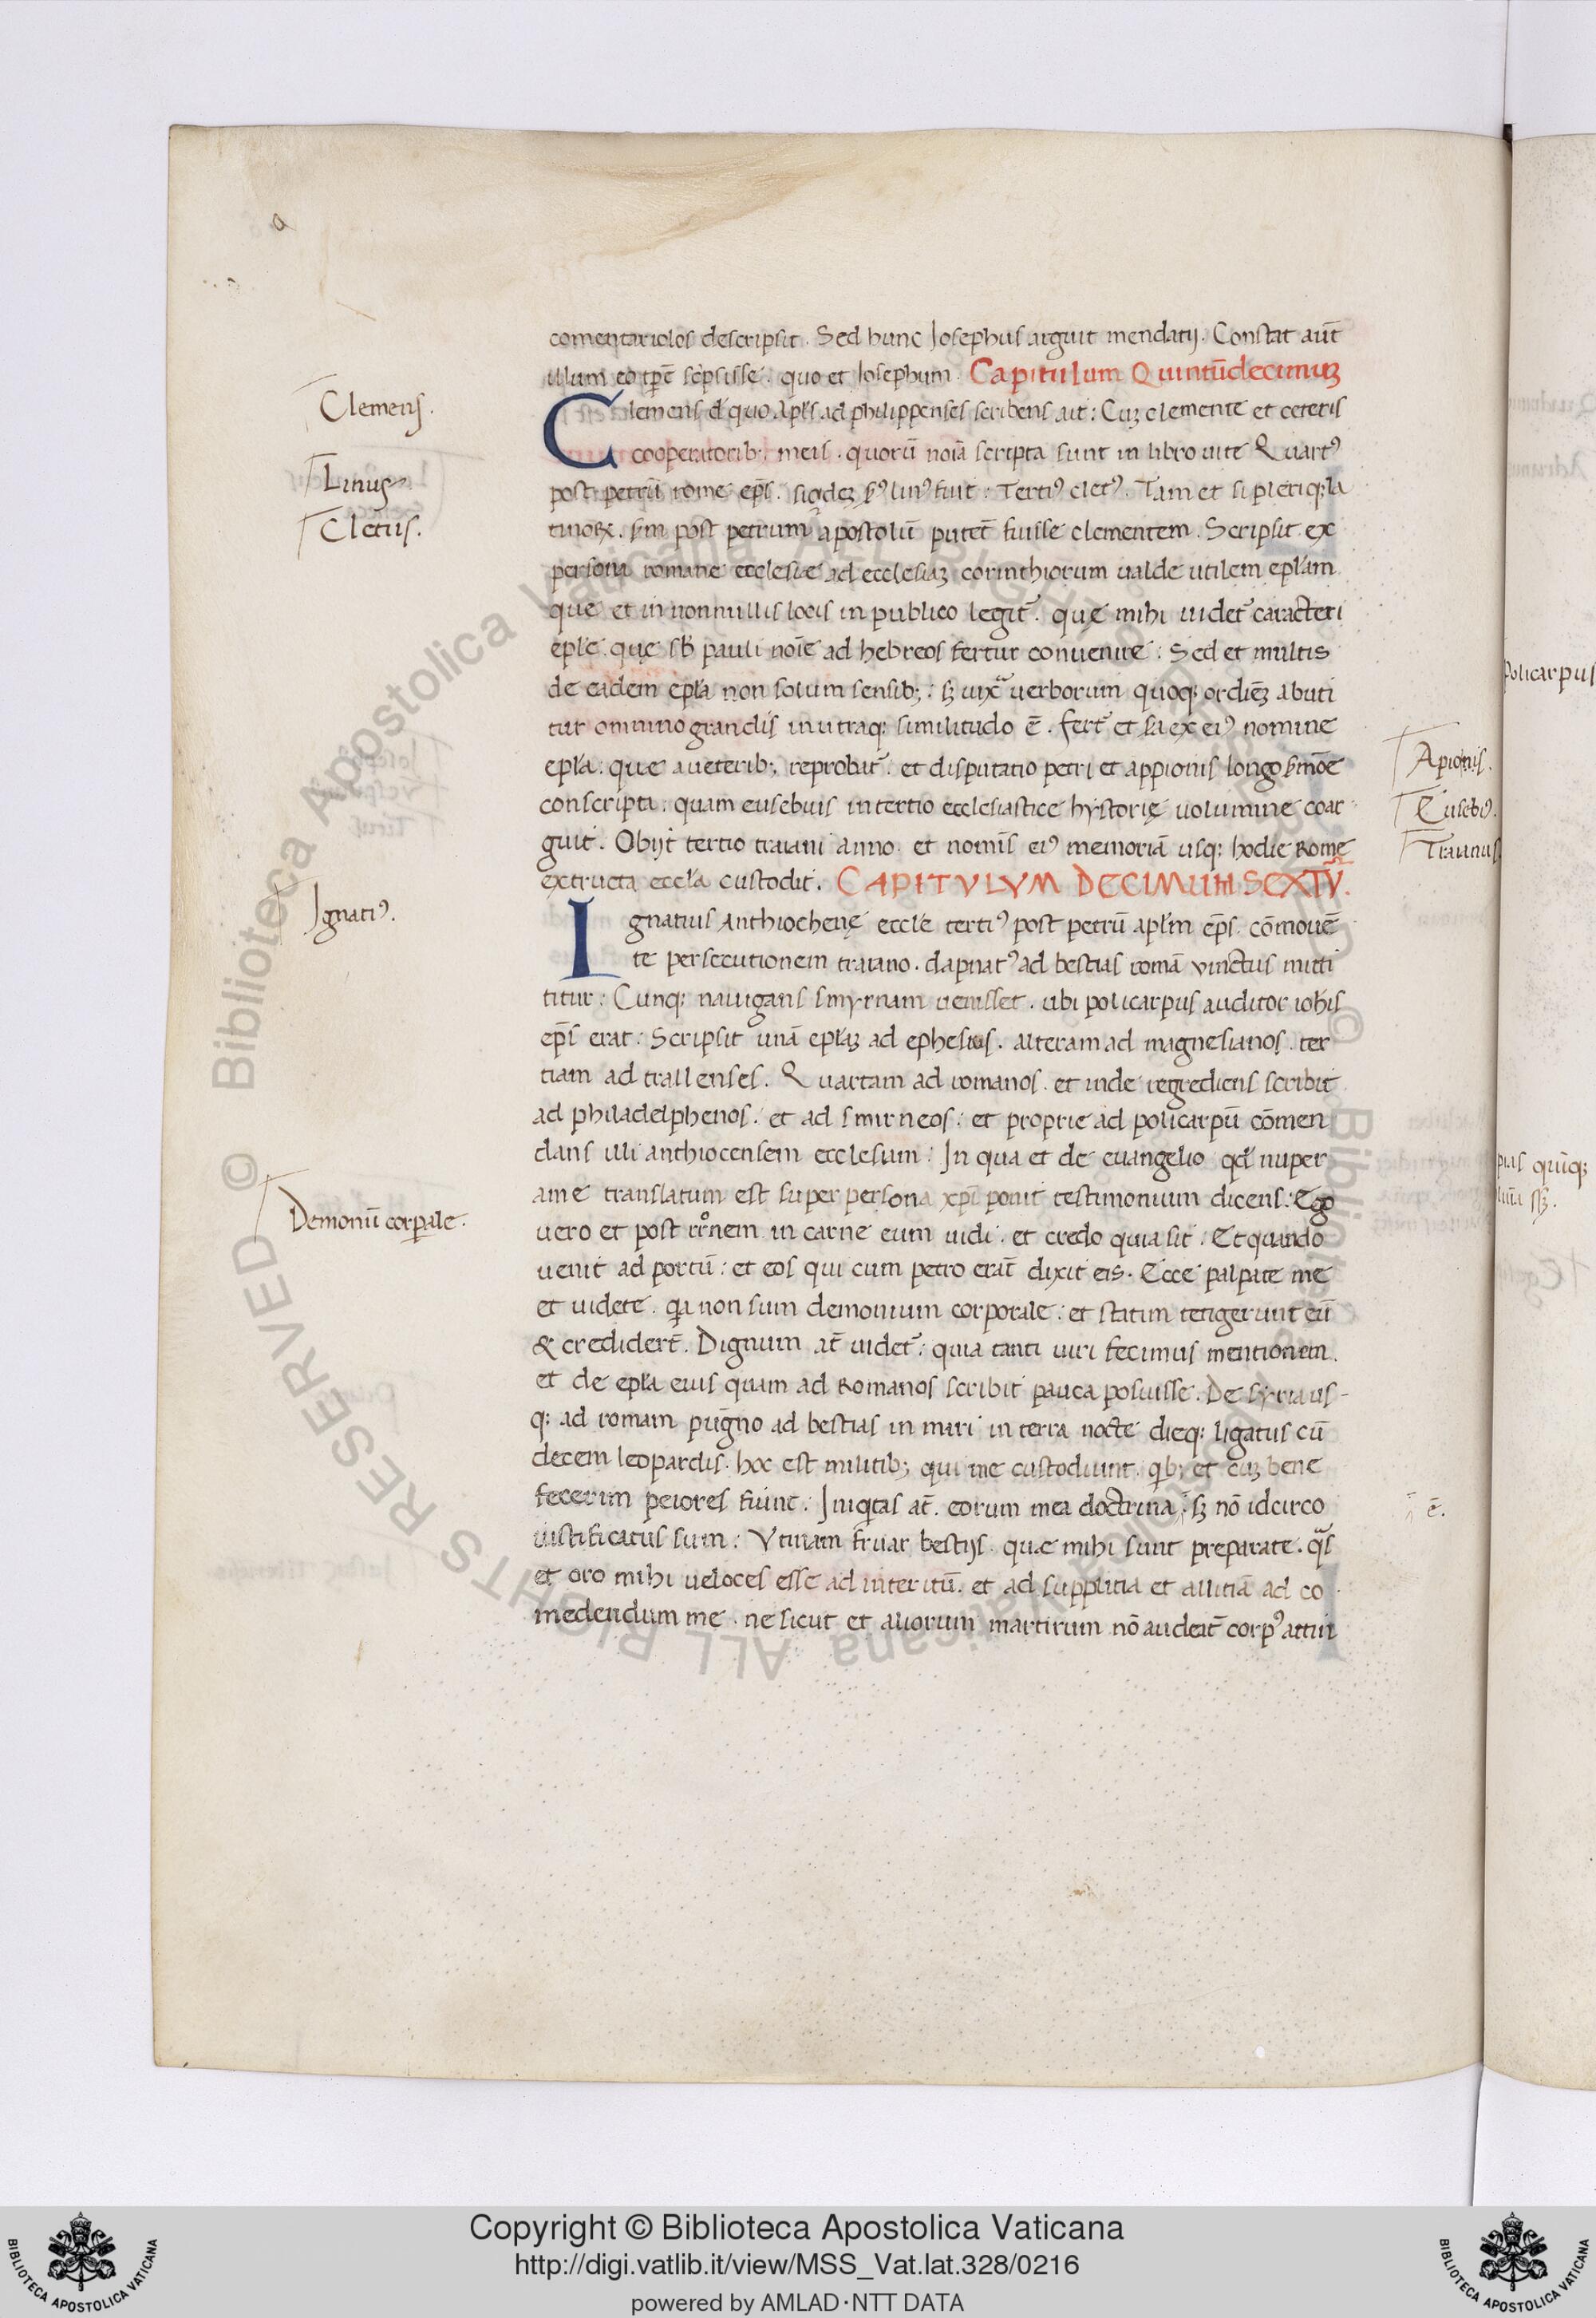 comentariolos descripsit. Sed hunc Josephus arguit mendatij. Constat aūt
illum eo tp̄e scripsisse. quo et Iosephum. Capitulum Quintūdecimuꝫ
Clemens de quo apl̄s ad philippenses scribens ait: Cuꝫ clemente et ceteris
cooperatoribꝫ meis. quorū noīa scripta sunt in libro uite Quartꝰ
post petrū rome ep̄s. siqdeꝫ linꝰ fuit: Tertiꝰ cletꝰ. Tam et si pleriqꝫ la
tinoꝝ. post petrum apostolū putet̄ fuisse clementem. Scripsit ex
persona romane ecclesiae ad ecclesiaꝫ corinthiorum ualde utilem epl̄am
que et in nonnullis locis in publico legit̄. quę mihi uidet̄ caracteri
epl̄e. quę sb̄ pauli noīe ad hebreos fertur conuenire: Sed et multis
de eadem epl̄a non solum sensibꝫ: sꝫ iuxͣ uerborum quoqꝫ ordīeꝫ abuti
tur omnino grandis in utraqꝫ similitudo ē. fert̄ et sͣa ex eiꝰ nomine
epl̄a. que a ueteribꝫ reprobat̄. et disputatio petri et appionis longo sermōe
conscripta: quam eusebius in tertio ecclesiastice hystorię uolumine coar
guit. Obijt tertio traiani anno. et nomīs eiꝰ memoriā usqꝫ hodie Romę
extructa eccl̄a custodit. CAPITVLVM DECIMUM SEXTV̄.
Ignatius Anthiochenę eccl̄e tertiꝰ post petrū apl̄m ep̄s. cōmouē
te persecutionem traiano. dapnatꝰ ad bestias romā vinctus mitti
titur: Cunqꝫ nauigans smyrnam uenisset. ubi policarpus auditor ioh̄is
ep̄s erat: Scripsit unā epl̄aꝫ ad ephesios. alteram ad magnesianos. ter
tiam ad trallenses. Quartam ad romanos. et inde regrediens scribit
ad philadelphenos. et ad smirneos: et proprie ad policarpū cōmen
dans illi anthiocensem ecclesiam: In qua et de euangelio qd̄ nuper
a me translatum est super persona xp̄i ponit testimonium dicens. Ego
uero et post rr̄onem in carne eum uidi. et credo quia sit: Et quando
uenit ad portū: et eos qui cum petro erāt dixit eis. Ecce palpate me
et uidete. qͣa non sum demonium corporale: et statim tetigerunt eū
& credidert̄. Dignum at̄ uidet̄: quia tanti uiri fecimus mentionem.
et de epl̄a eius quam ad Romanos scribit pauca posuisse. De syria us-
qꝫ ad romam pugno ad bestias in mari in terra nocte dieqꝫ ligatus cū
decem leopardis. hoc est militibꝫ qui me custodiunt. qͥbꝫ et cuꝫ bene
fecerim peiores fiunt. Iniqͥtas at̄. eorum mea doctrina: sꝫ nō idcirco
iustificatus sum: Vtinam fruar bestijs. quae mihi sunt preparate. qͣs
et oro mihi ueloces esse ad interitū. et ad supplitia et allitiā ad co
medendum me. ne sicut et aliorum martirum nō audeāt corpꝰ attin
Clemens.
Linus
Cletus.
Ignatiꝰ.
Demoniū corpale.
Apionis.
Eusebiꝰ.
Traianus
ē.
Policarpus
Copyright © Biblioteca Apostolica Vaticana
http://digi.vatlib.it/view/MSS_Vat.lat.328/0216
powered by AMLAD·NTT DATA
BIBLIOTECA APOSTOLICA VATICANA
BIBLIOTECA APOSTOLICA VATICANA
© Biblioteca Apostolica Vaticana ALL RIGHTS RESERVED